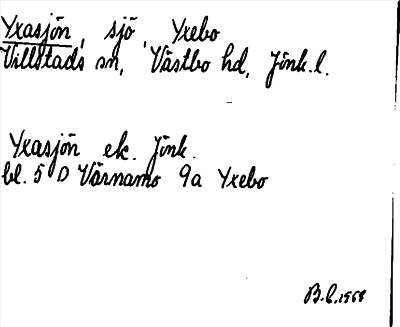 Yxasjön, sjö, Yxebo
Villstads sn, Västbo hd, Jönk.l.
Yxasjön ek. Jönk.
bl. 5 D Värnamo 9a Yxebo
B.L. 1968